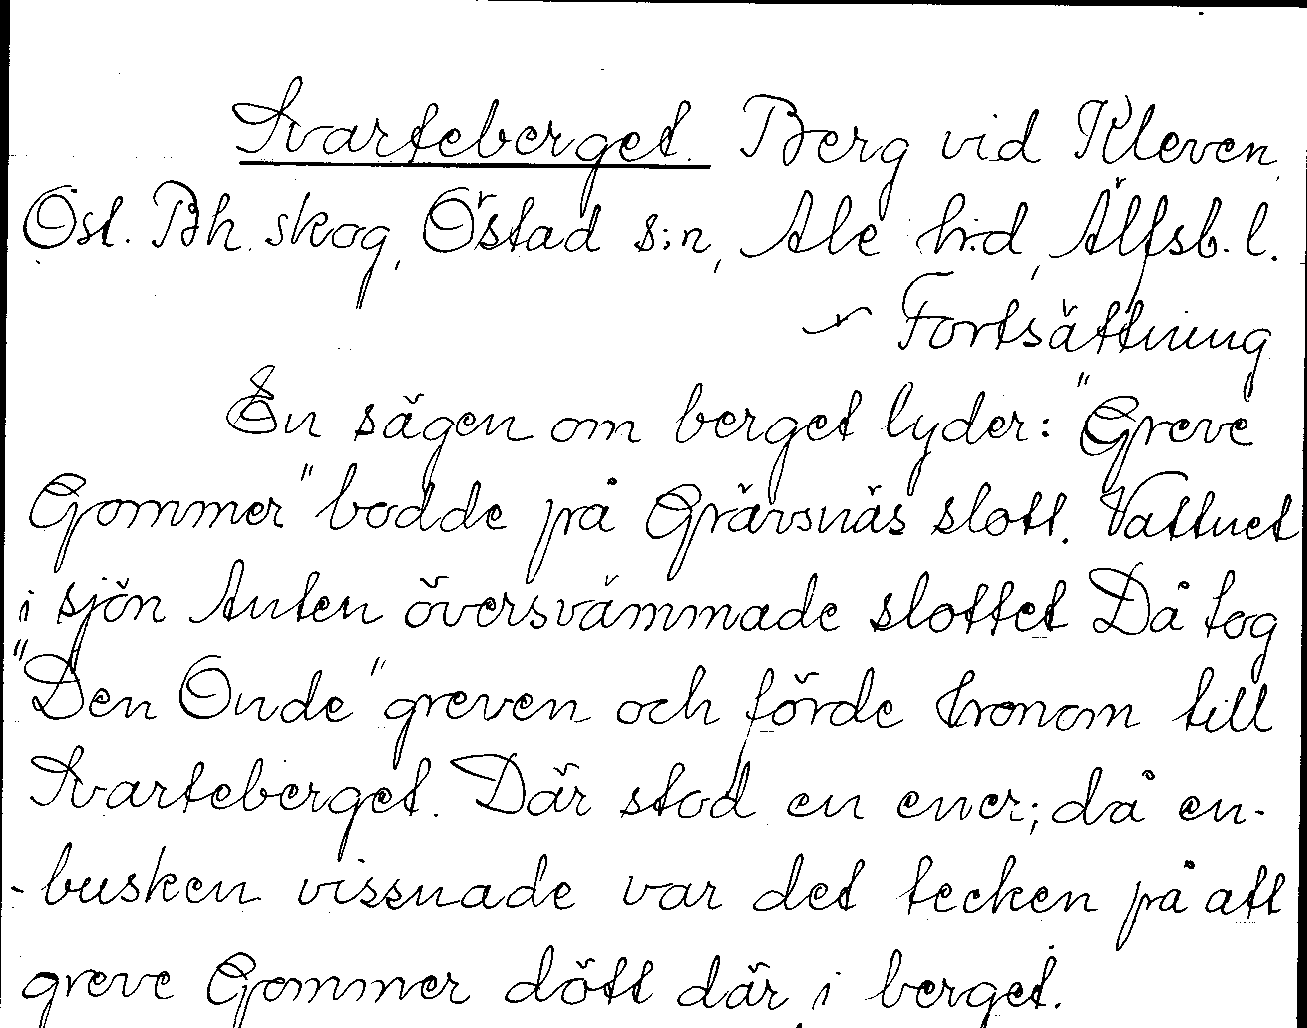 Svarteberget. Berg vid Kleven,
Öst. Bh. skog, Östad s:n, Ale h:d, Älfsb. l.
Fortsättning
En sägen om berget lyder: "Greve
Gommer" bodde på Gräfsnäs slott. Vattnet
i sjön Anten översvämmade slottet Då tog
"Den Onde" greven och förde honom till
Svarteberget. Där stod en ener; då en-
-busken vissnade var det tecken på att
greve Gommer dött där i berget.